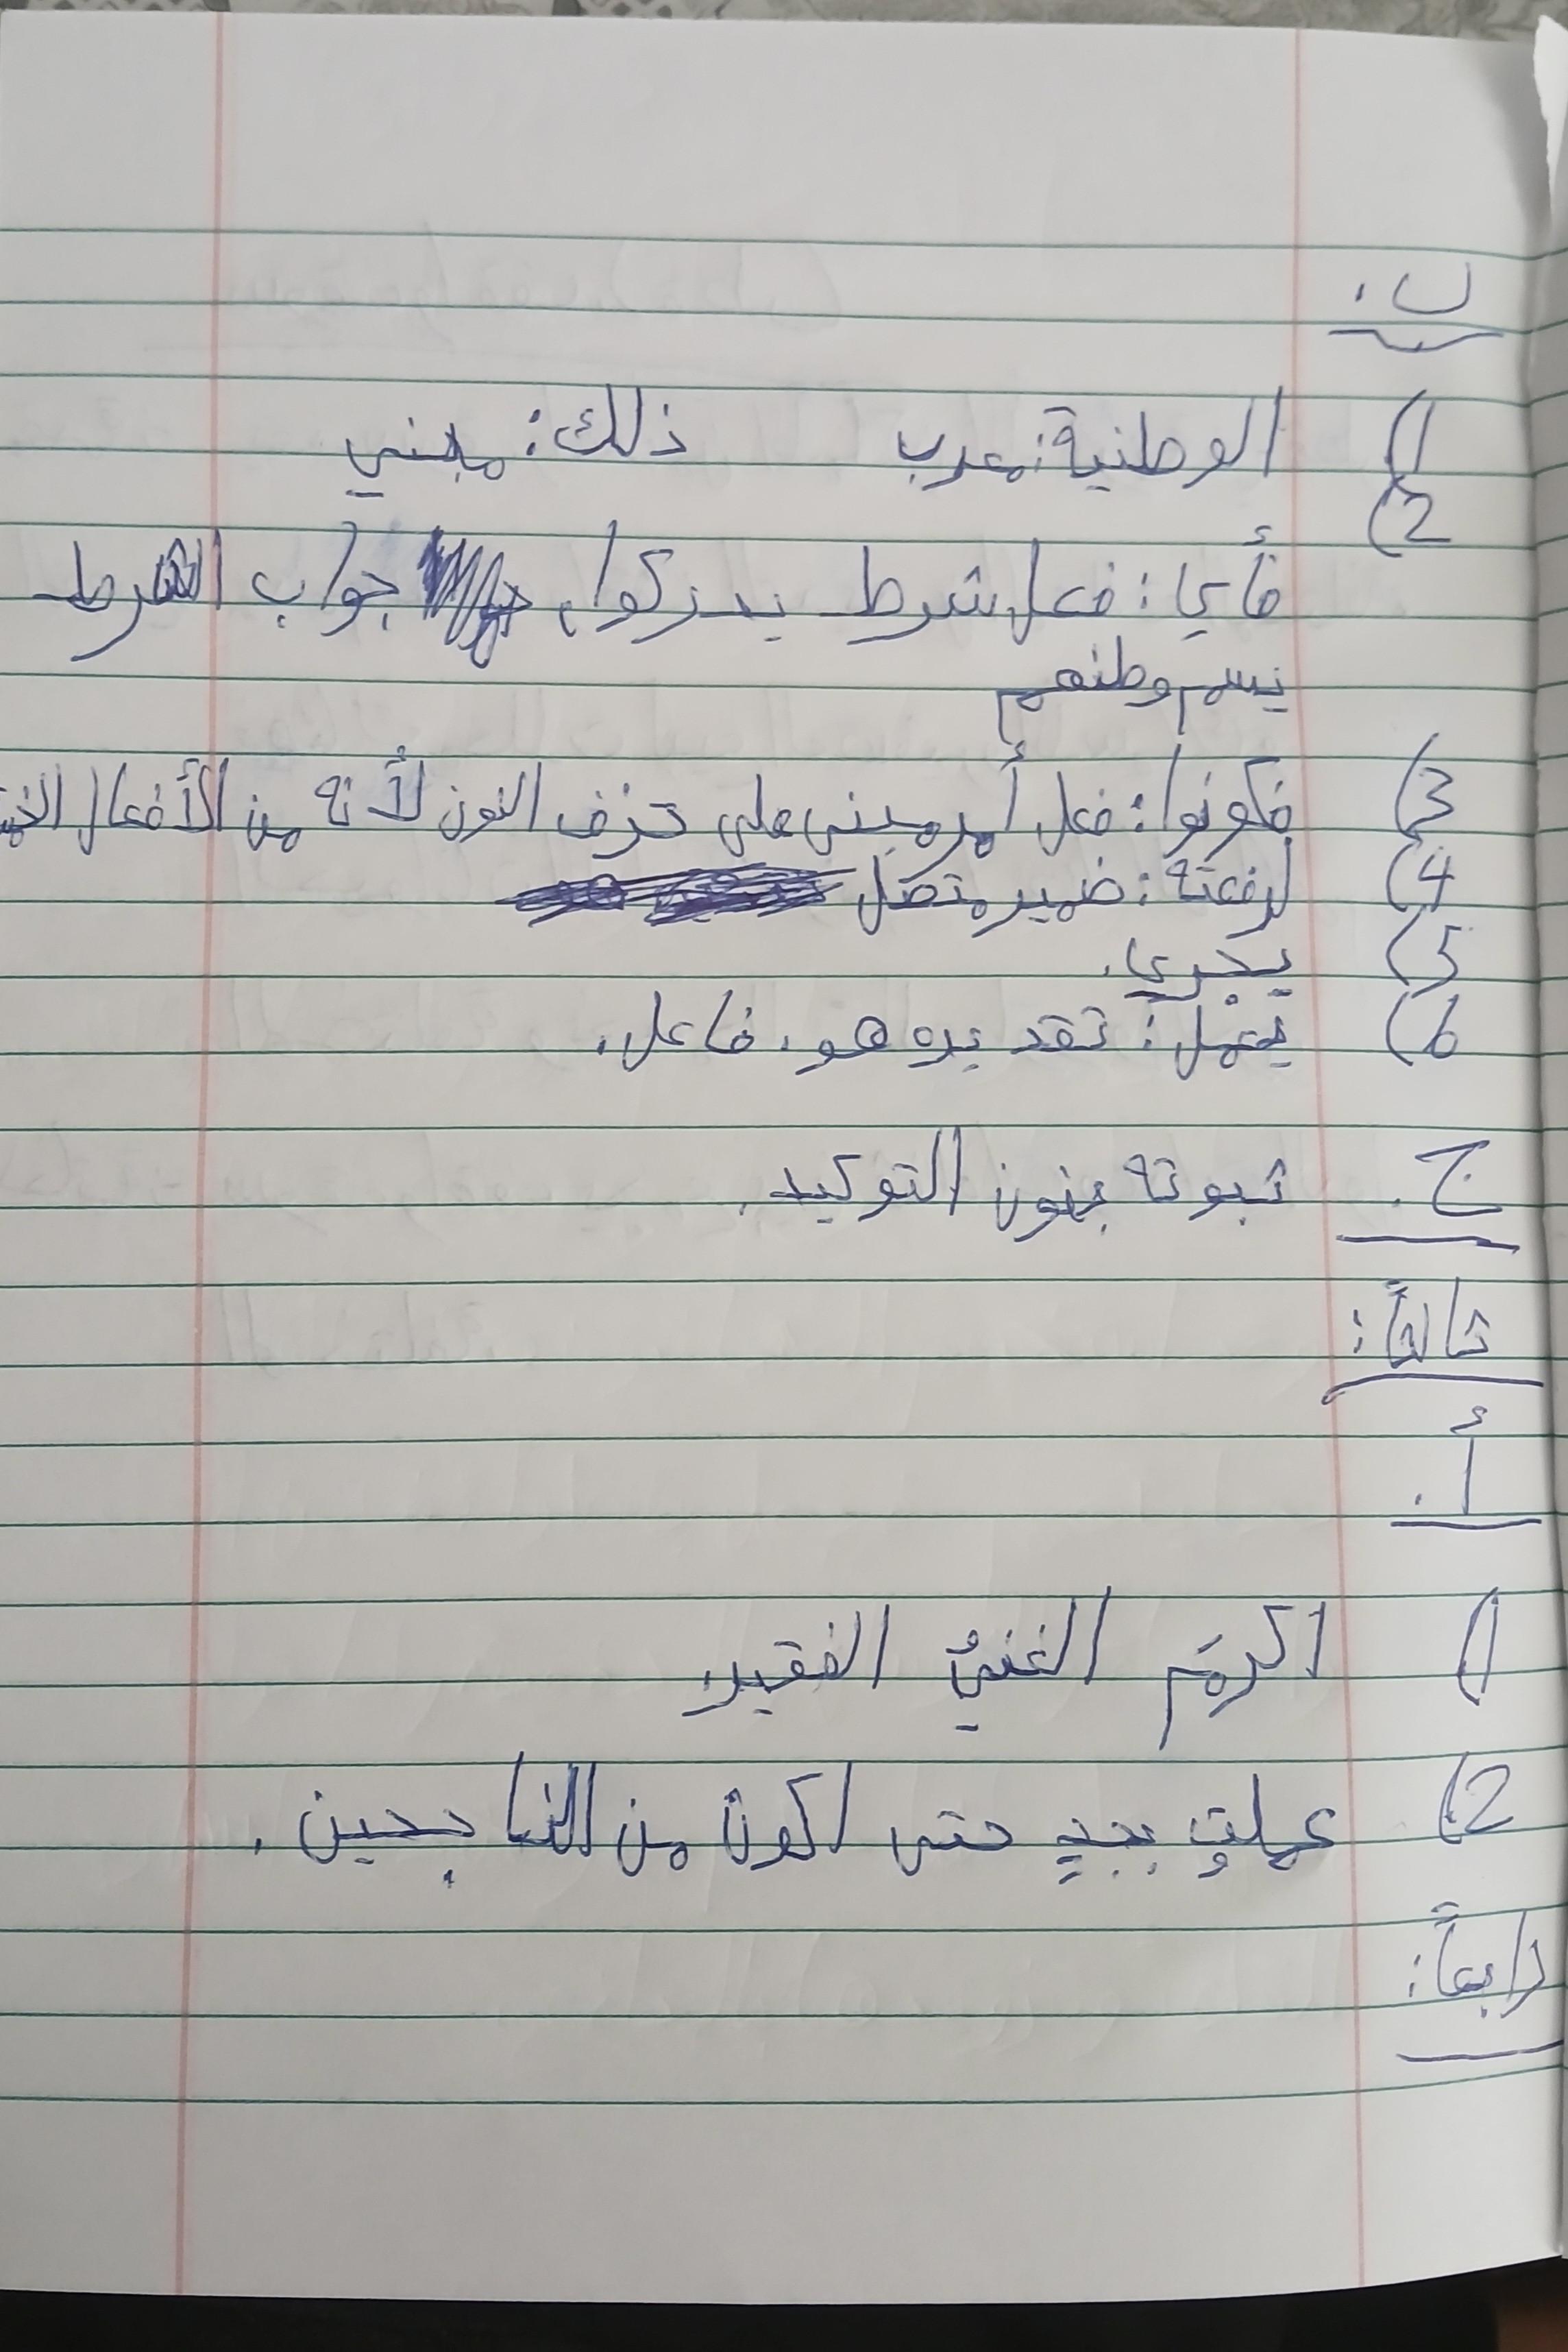 ب.
1) الوطنية: معرب ذلك: مبني
2)
فأي: فعل شرط يدركوا، جواب الشرط
يسم وطنهم
3) فكونوا: فعل أمر مبني على حذف النون لأنه من الأفعال
4) لرفعته: ضمير متصل
5) يجري.
6) يعمل: تقديره هو، فاعل.
ج. ثبوته بنون التوكيد.
ثالثاً:
أ.
1) اكرمَ الغنيُ الفقير
2) عملت بجدٍ حتى اكون من الناجحين.
رابعاً: